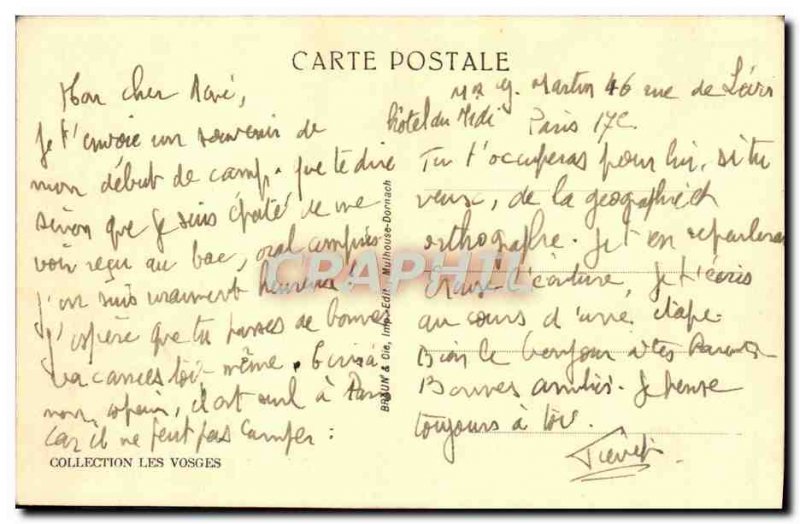 CARTE POSTALE
Mon cher René,
Je t'envoie un souvenir de
mon début de camp. que te dire
sinon que je suis épaté de me
voir reçu au bac, oral compris
j'en suis vraiment heureux !
J'espère que tu passes de bonnes
vacances toi-même. Ecris à
mon copain, il est seul à Paris
car il ne peut pas camper :
COLLECTION LES VOSGES
BRAUN & Cie, Imp.-Edit. Mulhouse-Dornach
Mr g. Martin 46 rue de Lévis
hôtel du Midi Paris 17e
Tu t'occuperas pour lui, si tu
veux, de la géographie et
orthographe. Je t'en reparlerai
Excuse l'écriture, je t'écris
au cours d'une étape.
Bien le bonjour à tes Parents
Bonnes amitiés. Je pense
toujours à toi.
CPAPHIL